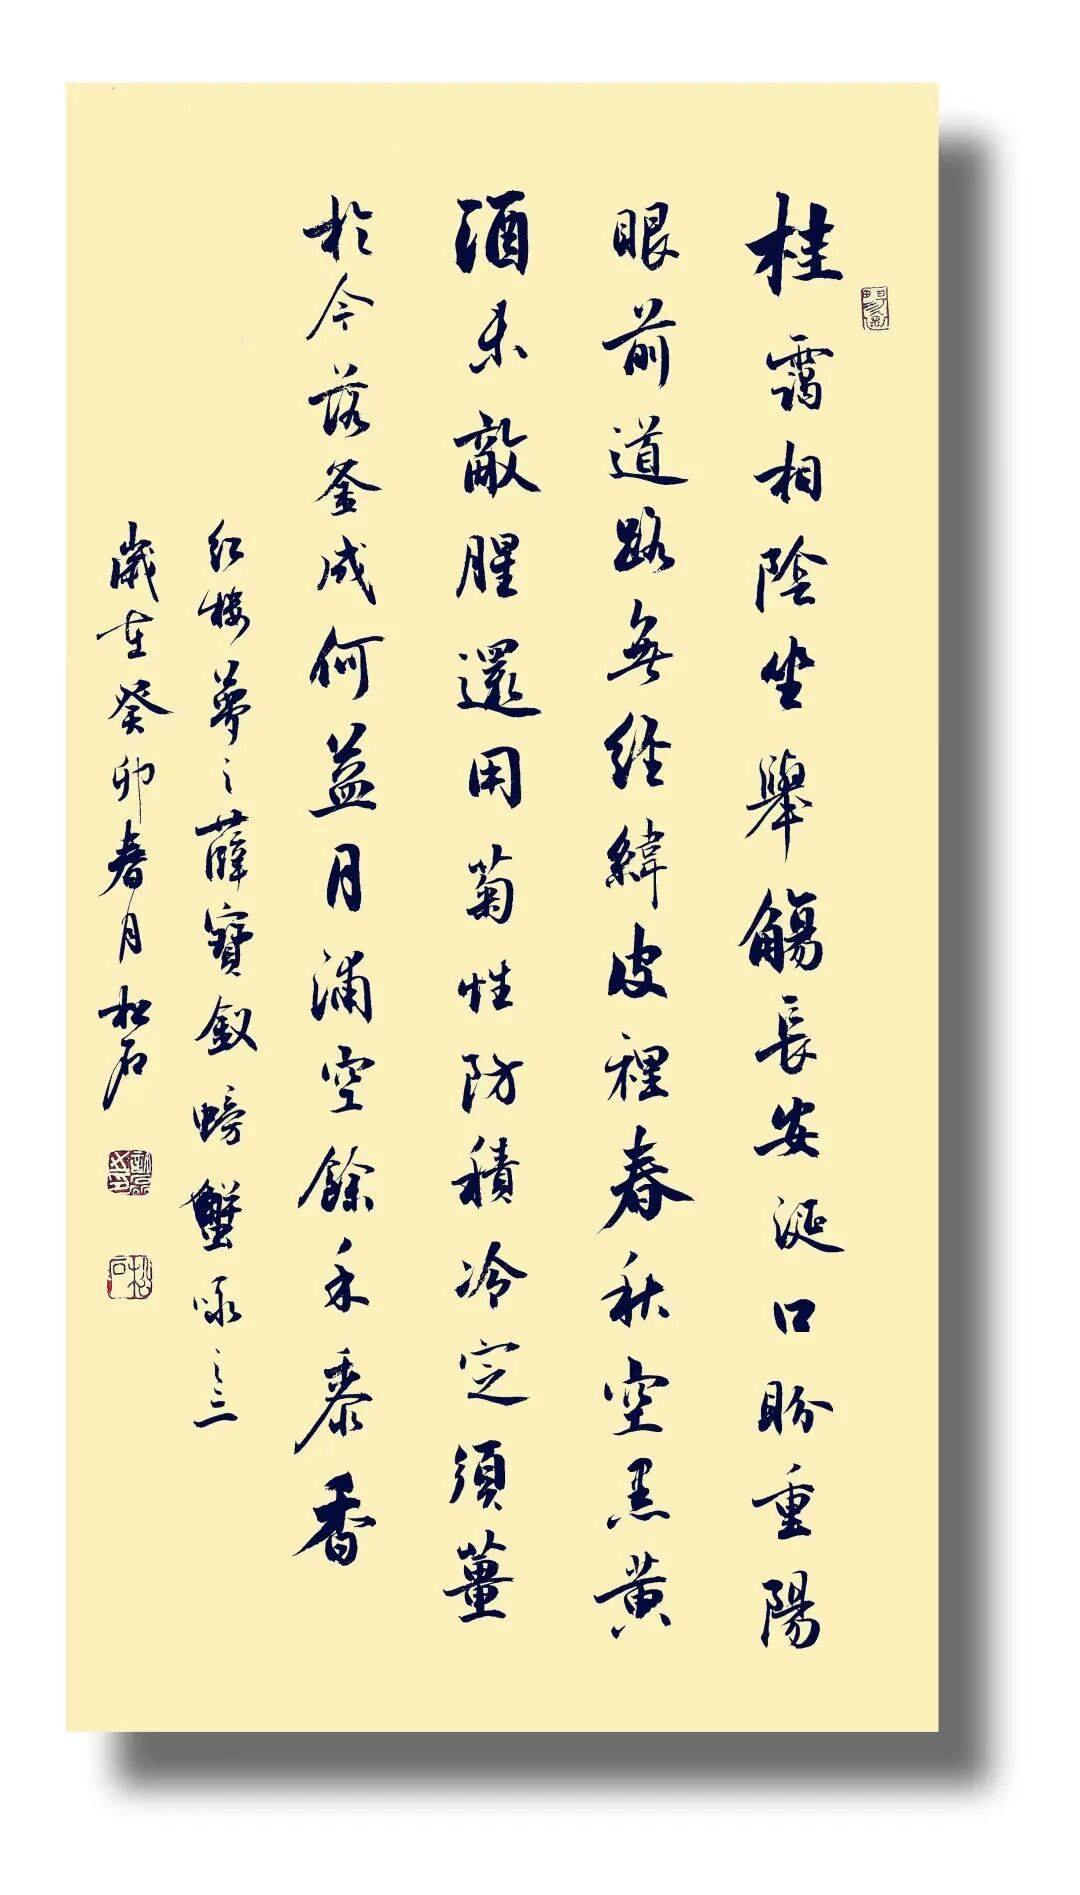 桂靄相陰坐舉觴長安涎口盼重陽
眼前道路無經緯皮裡春秋空黑黄
酒未敵腥還用菊性防積冷定須薑
於今落釜成何益月浦空餘禾黍香
红樓夢之薛寶釵螃蟹咏之三
歲在癸卯春月松石
松石